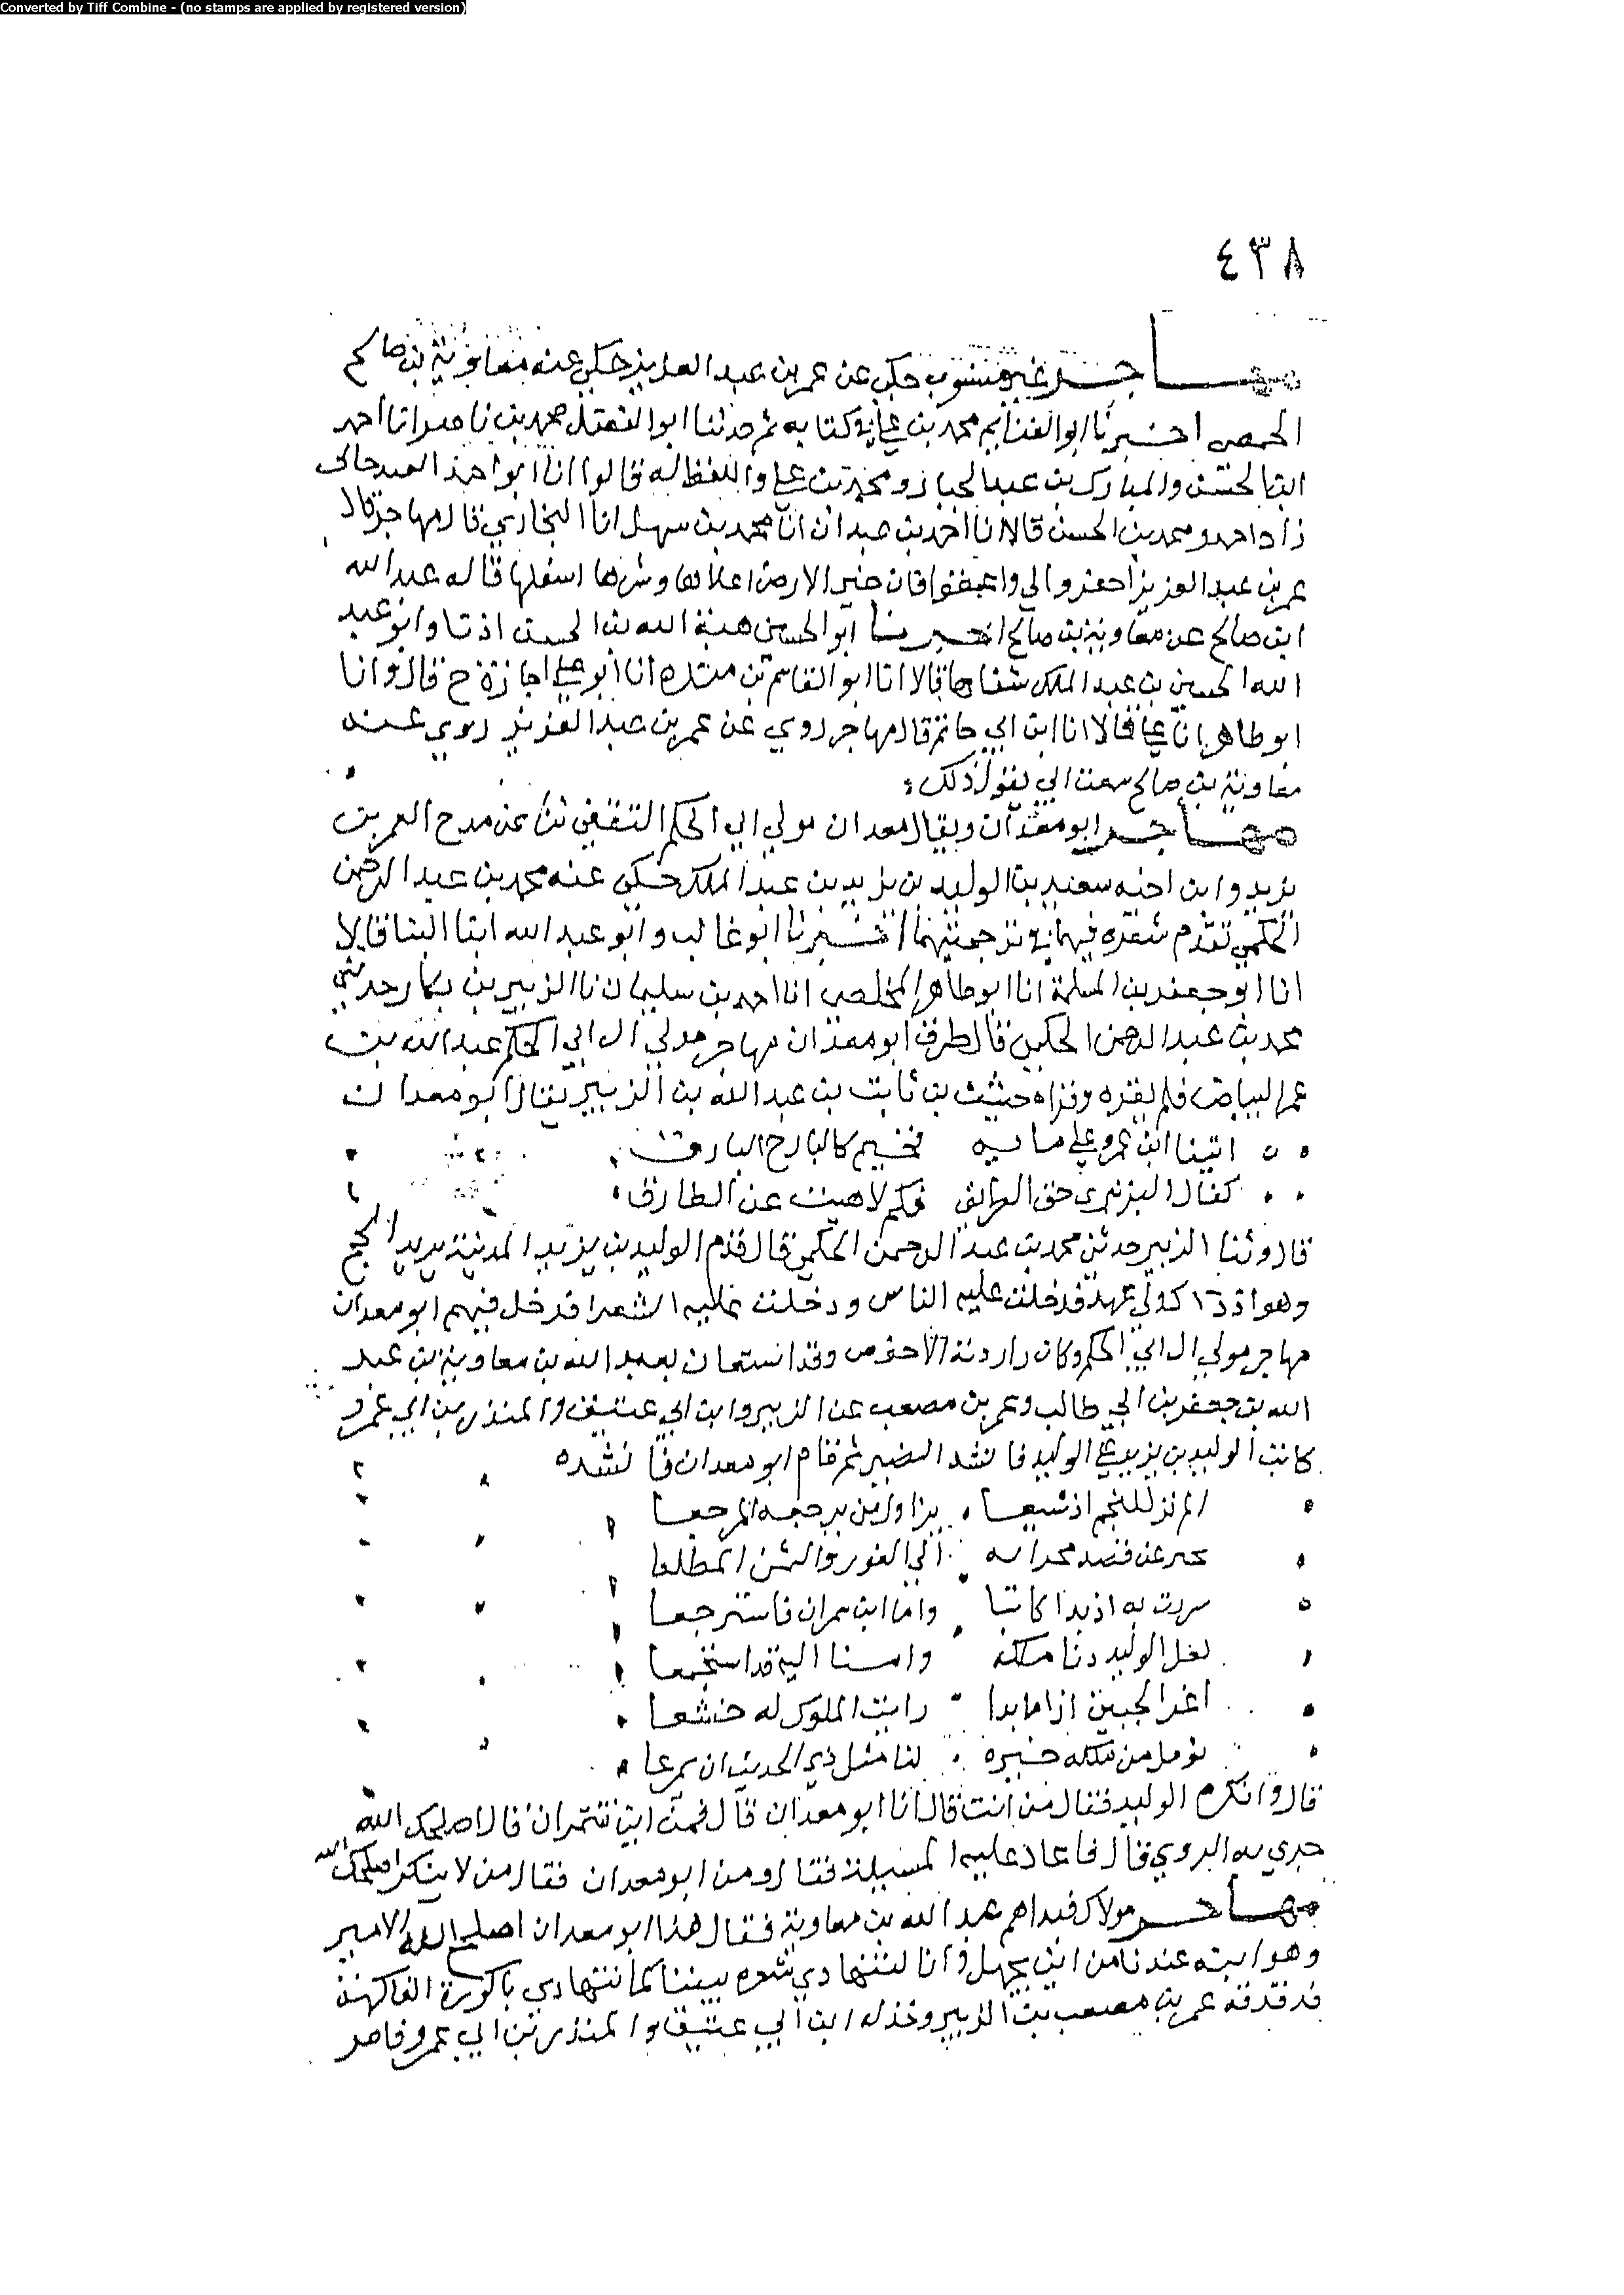 Converted by Tiff Combine - (no stamps are applied by registered version)
٤٣٨
مهاجر غير منسوب حكى عن عمر بن عبد العزيز حكى عنه معاوية بن صالح
الحمصي اخبرنا ابو الغنايم محمد بن علي في كتابه ثم حدثنا ابو الفضل محمد بن ناصر انا احمد
ابن الحسن والمبارك بن عبد الجبار ومحمد بن علي واللفظ له قالوا انا ابو احمد
زاد احمد ومحمد بن الحسن قالا انا احمد بن عبدان انا محمد بن سهل انا البخاري قال مهاجر قال
عمر بن عبد العزيز احفروا لي واعمقوا فان خير الارض اعلاها وشرها اسفلها قاله عبد الله
ابن صالح عن معاوية بن صالح اخبرنا ابو الحسين هبة الله بن الحسن اذنا وابو عبد
الله الحسين بن عبد الملك شفاها قالا انا ابو القاسم بن منده انا ابو علي اجازة ح قال وانا
ابو طاهر انا علي قالا انا ابن ابي حاتم قال مهاجر روي عن عمر بن عبد العزيز روى عنه
معاوية بن صالح سمعت ابي يقول ذلك
مهاجر ابو معدان ويقال معدان مولى ابي الحكم الثقفي شاعر مدح العمر بن
يزيد وابن اخيه سعيد بن الوليد بن يزيد بن عبد الملك حكى عنه محمد بن عبد الرحمن
الحكمي تقدم شعره فيهما في ترجمتيهما اخبرنا ابو غالب وابو عبد الله ابنا البنا قالا
انا ابو جعفر بن المسلمة انا ابو طاهر المخلص انا احمد بن سليمان نا الزبير بن بكار حدثني
محمد بن عبد الرحمن الحكمي قال طرق ابو معدان مهاجر مولى ال ابي الحكم عبد الله بن
عمر البياض فلم يقره وقراه خبيب بن ثابت بن عبد الله بن الزبير فقال ابو معدان
اتينا ابن عمرو على مابه فخيم كالبارح البارق
فقال الزبيري حق فكم لاهيت عن الطارق
قال وثنا الزبير حدثني محمد بن عبد الرحمن الحكمي قال قدم الوليد بن يزيد المدينة يريد الحج
وهو اذ ذاك ولي عهد فدخلت عليه الناس ودخلت عليه الشعرا فدخل فيهم ابو معدان
مهاجر مولى ال ابي الحكم وكان راوية الاحوص وقد استعان بعبد الله بن معاوية بن عبد
الله بن جعفر بن ابي طالب وعمر بن مصعب عن الزبير وابن ابي عتيق والمنذر بن ابي عمرو
كاتب الوليد بن يزيد على الوليد فانشد النصير ثم قام ابو معدان فانشده
الم تر للنجم اذ شيعا يزاول من برجه المرجعا
تحير عن قصد مجرابه الى الغور والتمس المطلعا
سررت به اذ بدا كاتبا واما ابن سمران فاسترجعا
لعل الوليد دنا ملكه وامسا اليه قد استجمعا
اغر الجبين اذا ما بدا رايت الملوك له خشعا
نومل من ملكه خيره لنا مثل ذي الحديث ان يمرعا
قال وانكرم الوليد فقال من انت قال انا ابو معدان قال فمن ابن شمران قال اصلحك الله
جرى به الروي قال فاعاد عليه المسيلة فقال ومن ابو معدان فقال من لا ينكر اصلحك الله
مهاجر مولاك فبداهم عبد الله بن معاوية فقال هذا ابو معدان اصلح الله الامير
وهو ابيه عندنا من اين يجهل وانا لنتهادى شعره بيننا كما نتهادى باكورة الفاكهة
فصدقه عمر بن مصعب بن الزبير وخذله ابن ابي عتيق والمنذر بن ابي عمرو فامر